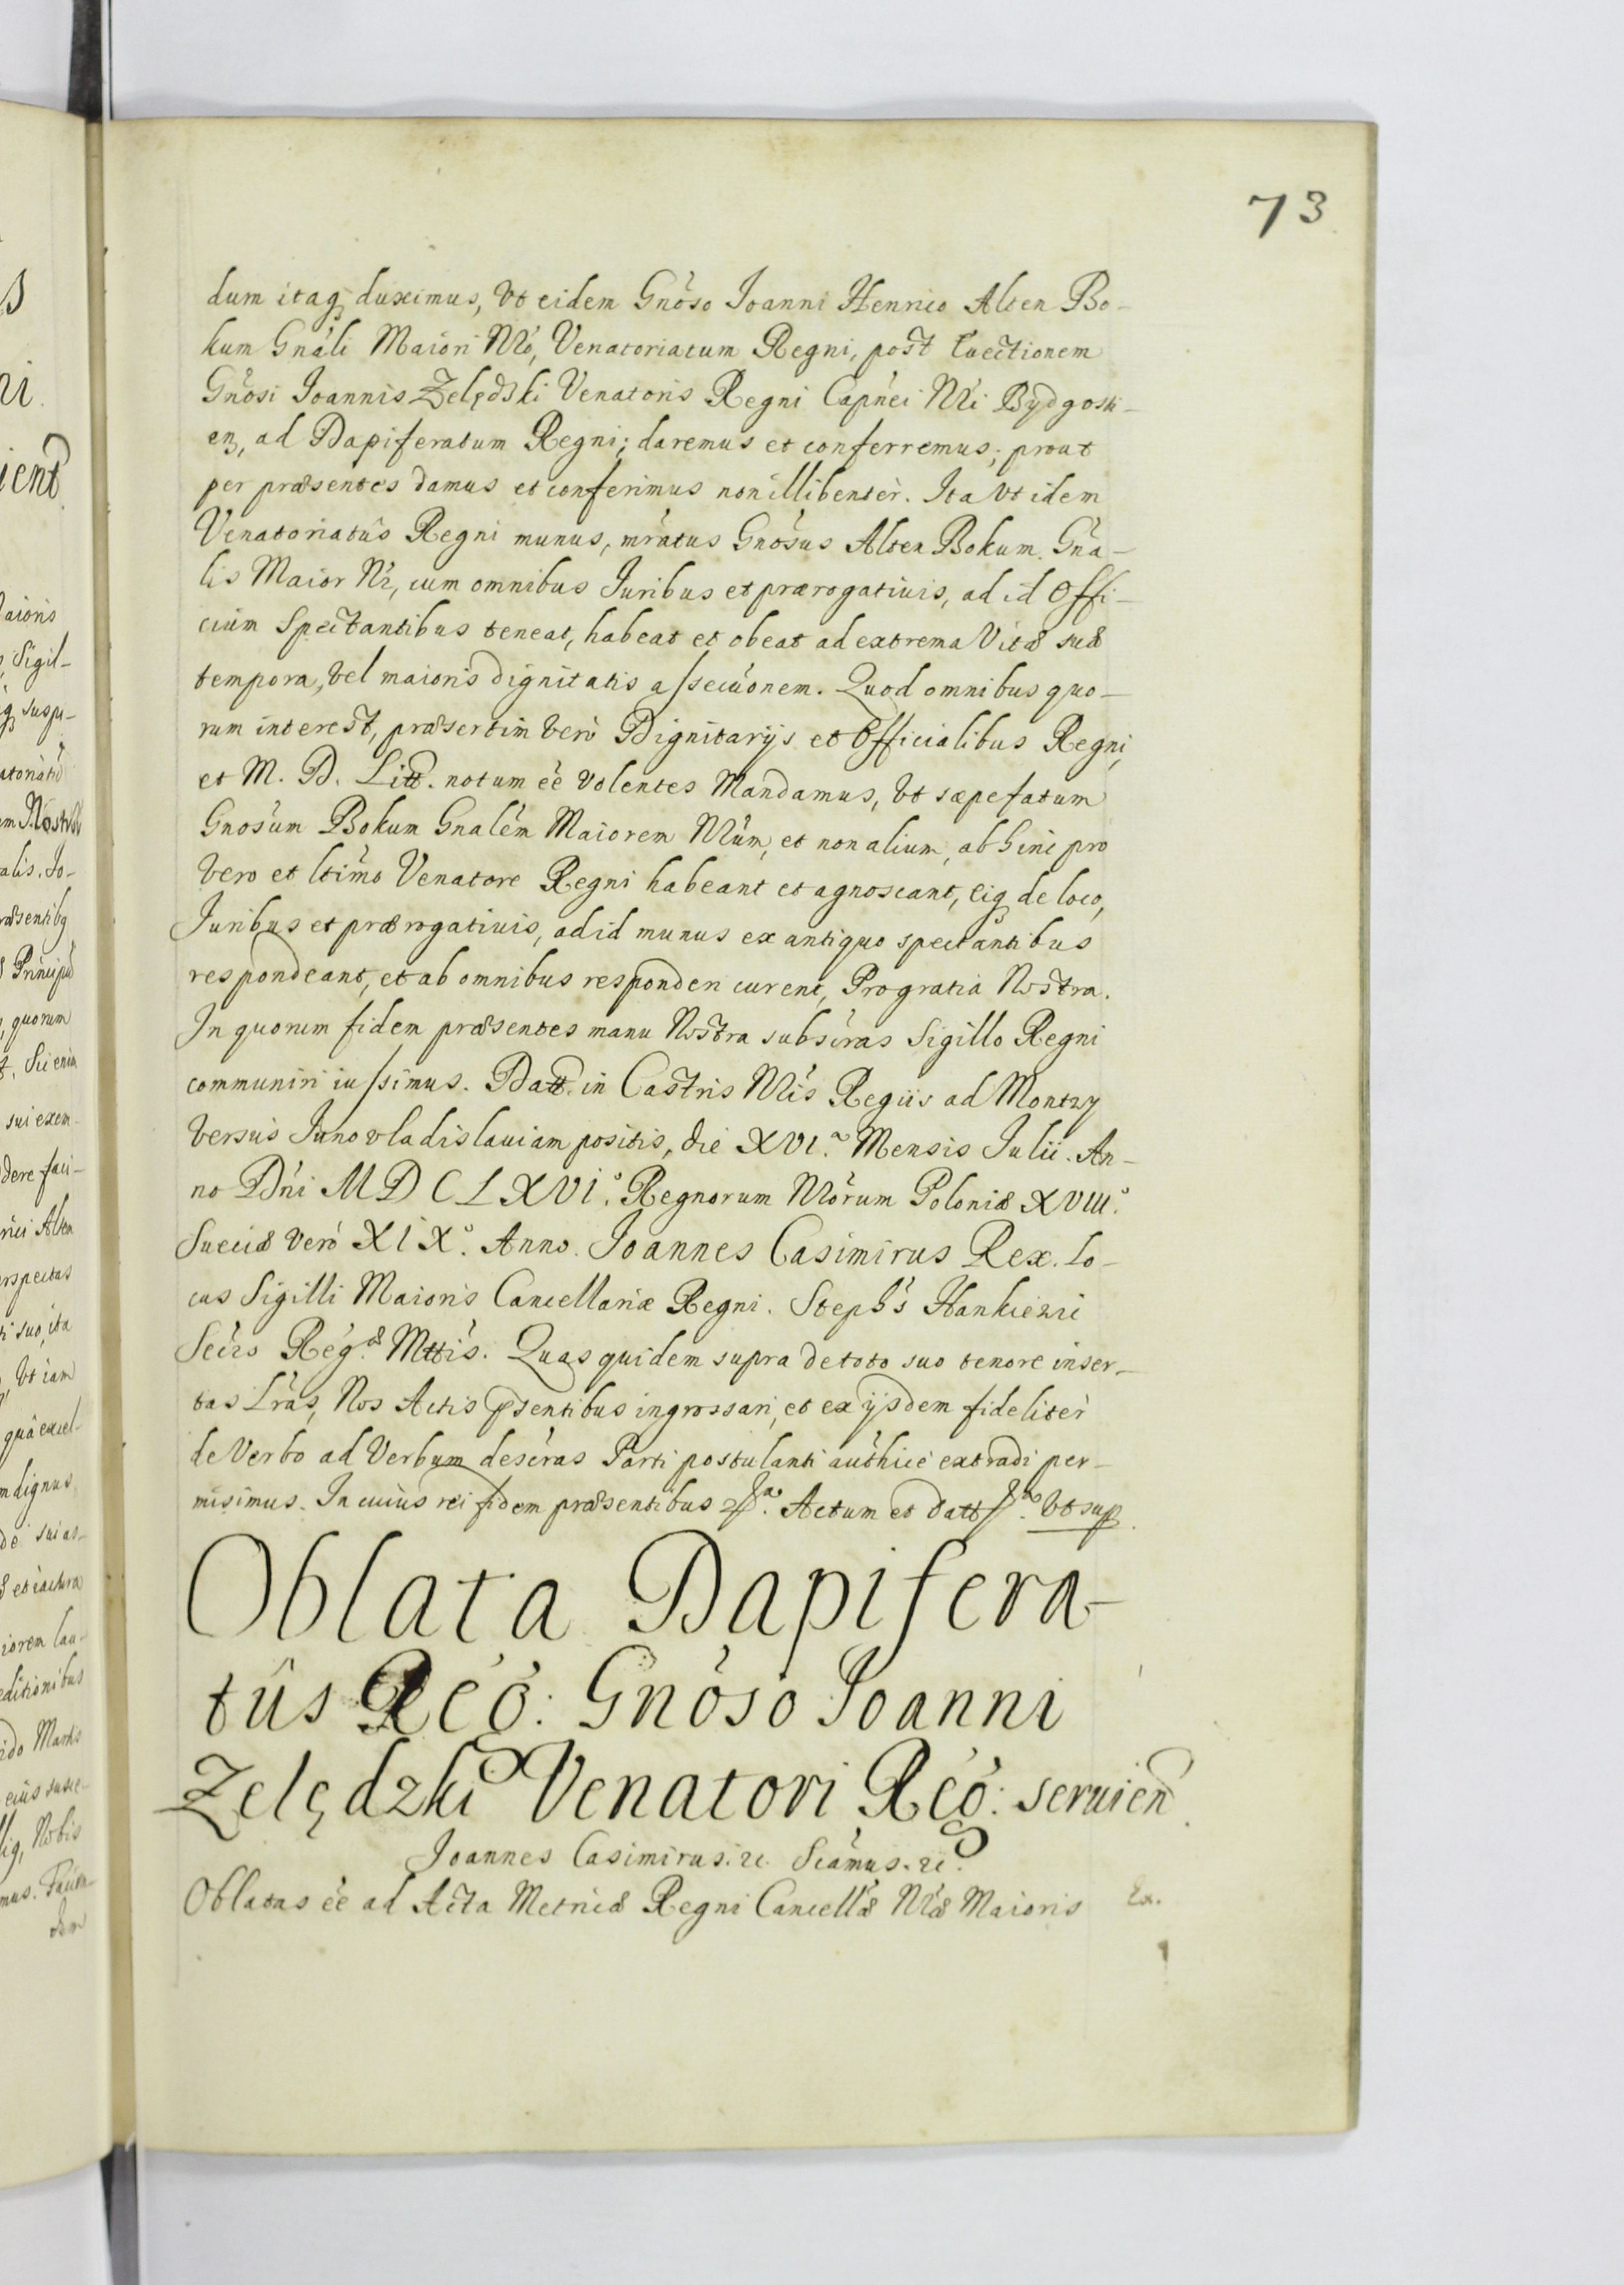 73
dum itaq; duximus, Vt eidem Gnoso Joanni Henrico Alten Bo-
kum Gnali Maiori Nro, Venatoriatum Regni, post Euectionem
Gnosi Joannis Zelędzki Venatoris Regni Capnei Nri Bydgosti-
en, ad Dapiferatum Regni; daremus et conferremus; prout
per præsentes damus et conferimus non illibentèr. Ita Vt idem
Venatoriatûs Regni munus, mratus Gnosus Alten Bokum Gna-
lis Maior Nr, cum omnibus Juribus et prærogatiuis, ad id Offi-
cium Spectantibus teneat, habeat et obeat ad extrema Vitæ suæ
tempora, vel maioris dignitatis assecuonem. Quod omnibus quo-
rum interest, præsertim verò Dignitarijs et Officialibus Regni,
et M. D. Litt. notum ee Volentes Mandamus, Vt sæpefatum
Gnosum Bokum Gnalem Maiorem Nrum, et non alium, abhinc pro
Vero et ltimo Venatore Regni habeant et agnoscant, eiq; de loco,
Juribus et prærogatiuis, ad id munus ex antiquo spectantibus
respondeant, et ab omnibus responderi curent, Pro gratia Nostra.
In quorum fidem præsentes manu Nostra subscras Sigillo Regni
communiri iussimus. Datt. in Castris Nris Regiis ad Montwy
versus Junovladislauiam positis, die XVI.a Mensis Julii. An-
no Dni MDCLXVI.o Regnorum Nrorum Poloniæ XVIII.o
Sueciæ Verò XIX.o Anno. Joannes Casimirus Rex. Lo-
cus Sigilli Maioris Cancellariæ Regni. Stephs Hankiewic
Secrs Reg.æ Mttis. Quas quidem supra de toto suo tenore inser-
tas Lras, Nos Actis pstentibus ingrossari, et ex ijsdem fidelitèr
de Verbo ad Verbum descras Parti postulanti authice extradi per-
misimus. In cuius rei fidem præsentibus Actum et datt Vt sup
Oblata Dapifera-
tûs Reg: Gnoso Joanni
Zelędzki Venatori Reg: seruien
Joannes Casimirus. rc. Scamus. rc.
Oblatas ee ad Acta Metricæ Regni Cancellæ Nræ Maioris Ex.